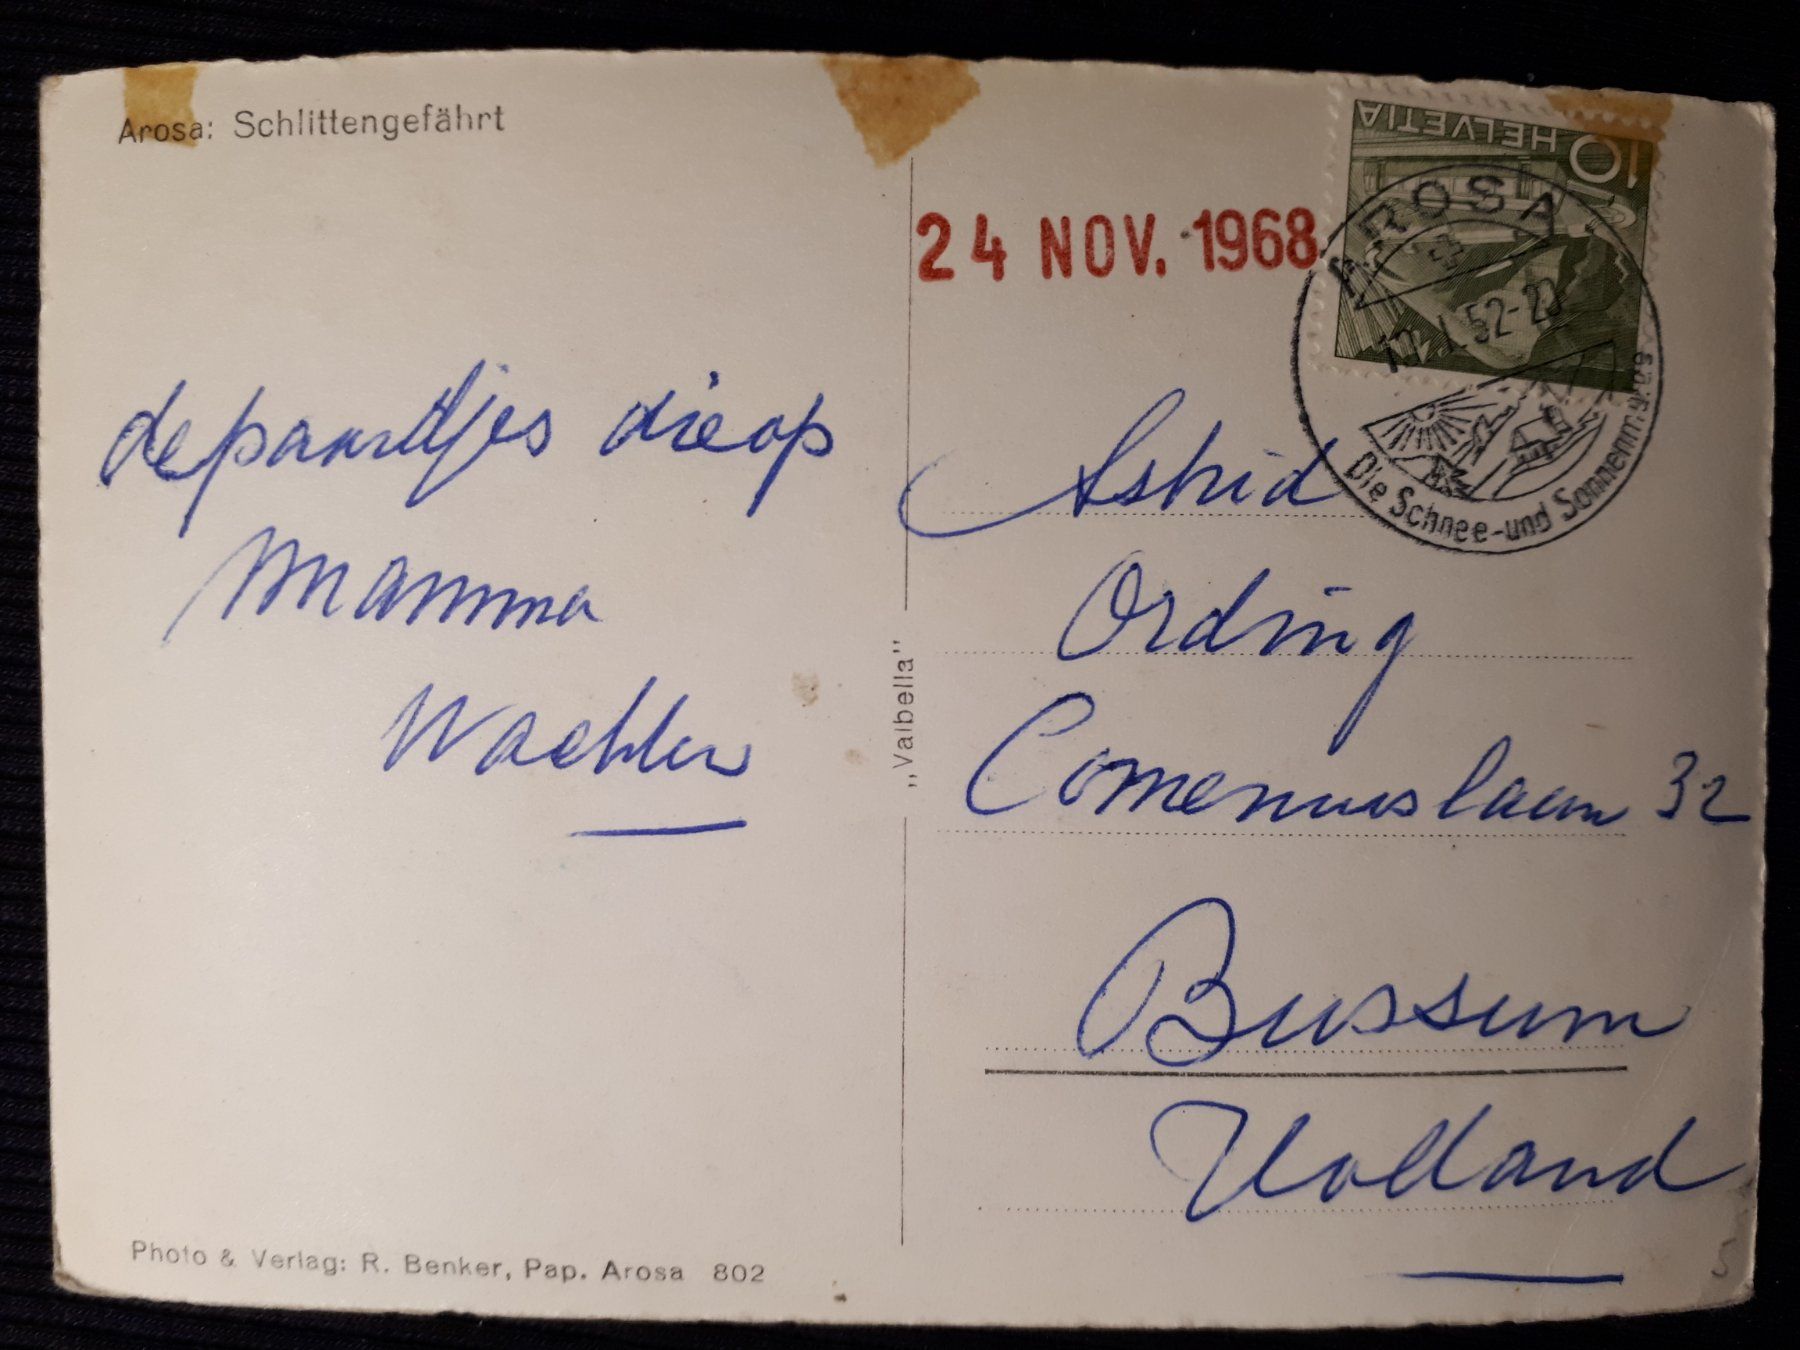 Arosa: Schlittengefährt
24 NOV. 1968
HELVETIA
10
AROSA
52-20
Die Schnee- und Sonnenm.
de paardjes die op
Mamma
Wachten
Astrid
Ording
Comeniuslaan 32
Bussum
Holland
„Valbella"
Photo & Verlag: R. Benker, Pap. Arosa 802
5